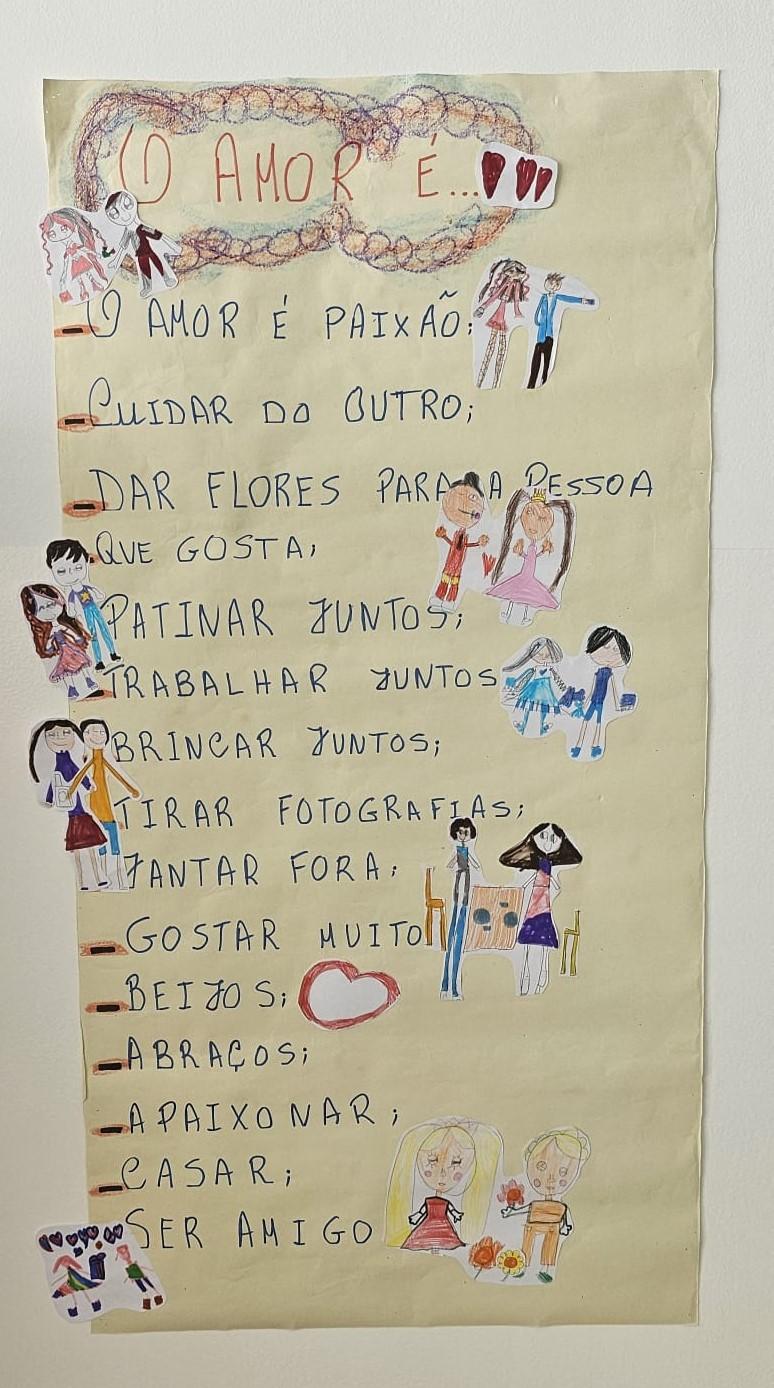 O AMOR É...
- O AMOR É PAIXÃO;
- CUIDAR DO OUTRO;
- DAR FLORES PARA A PESSOA
QUE GOSTA;
PATINAR JUNTOS;
- TRABALHAR JUNTOS
BRINCAR JUNTOS;
TIRAR FOTOGRAFIAS;
JANTAR FORA;
- GOSTAR MUITO
- BEIJOS;
- ABRAÇOS;
- APAIXONAR;
- CASAR;
SER AMIGO